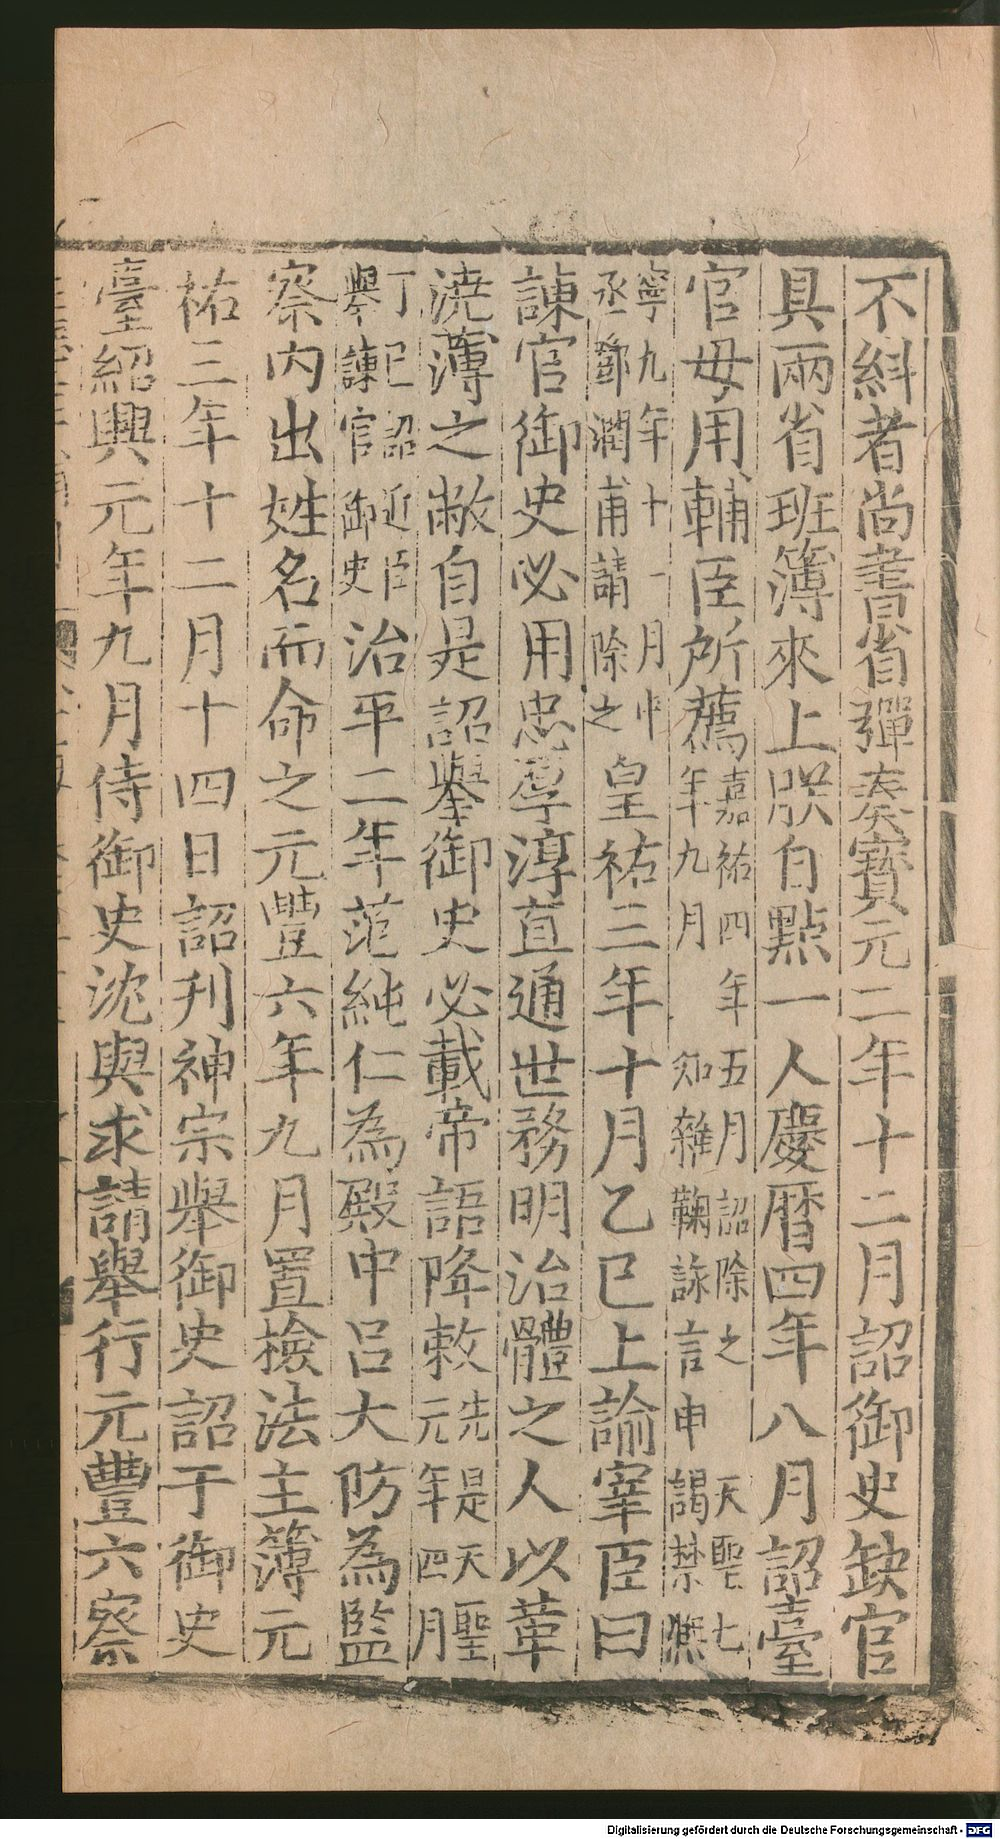 不糾者尚書省彈奏寶元二年十二月詔御史缺官
具兩省班簿來上朕自點一人慶曆四年八月詔臺
官毋用輔臣所薦嘉祐四年五月詔除之天聖七
年九月知雜鞠詠言申謁禁熈
寧九年十一月中
丞鄧潤甫請除之皇祐三年十月乙巳上諭宰臣曰
諫官御史必用忠厚淳直通世務明治體之人以革
澆薄之敝自是詔舉御史必載帝語降敕先是天聖
元年四月
丁巳詔近臣
舉諫官御史治平二年范純仁為殿中呂大防為監
察内出姓名而命之元豐六年九月置檢法主簿元
祐三年十二月十四日詔刋神宗舉御史詔于御史
臺紹興元年九月侍御史沈與求請舉行元豐六察
Digitalisierung gefördert durch die Deutsche Forschungsgemeinschaft - DFG